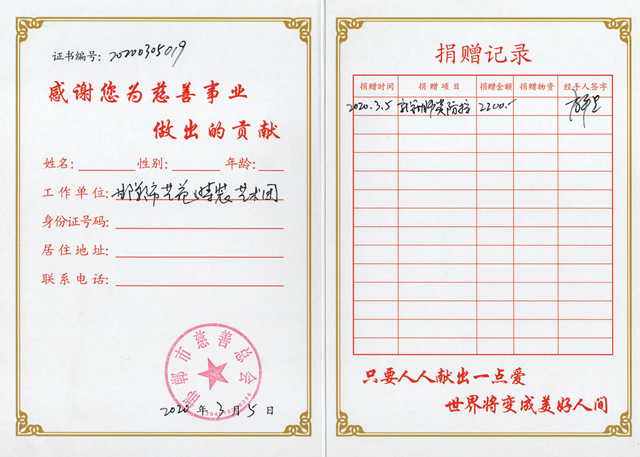 证书编号：20200305019
感谢您为慈善事业
做出的贡献
姓名： 性别： 年龄：
工作单位：邯郸市艺苑时装艺术团
身份证号码：
居住地址：
联系电话：
邯郸市慈善总会
2020年3月5日
捐赠记录
捐赠时间 捐赠项目 捐赠金额 捐赠物资 经手人签字
2020.3.5 新冠肺炎防控 2200.-
只要人人献出一点爱
世界将变成美好人间